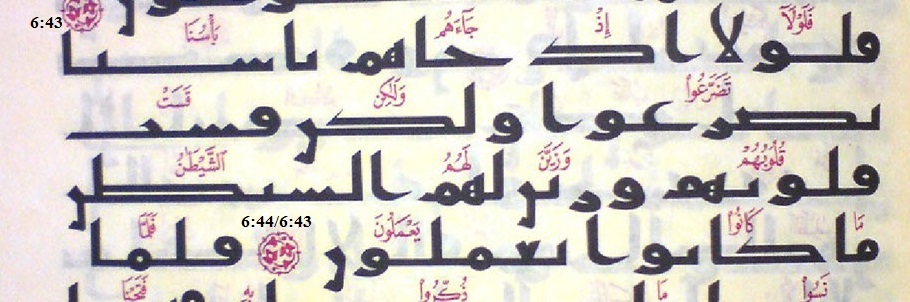 6:43
فَلَوْلَآ إِذْ جَآءَهُم بَأْسُنَا
فلولا اد حاهم باسنا
تَضَرَّعُوا۟ وَلَٰكِن قَسَتْ
تصرعوا ولكن فست
قُلُوبُهُمْ وَزَيَّنَ لَهُمُ ٱلشَّيْطَٰنُ
فلوبهم ورين لهم السيطن
6:44/6:43
مَا كَانُوا۟ يَعْمَلُونَ فَلَمَّا
ما كانوا يعملون فلما
نَسُوا۟ مَا ذُكِّرُوا۟ بِهِۦ فَتَحْنَا